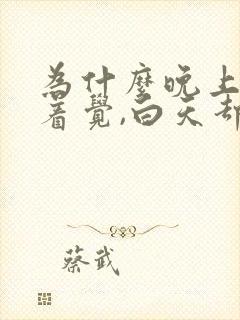 為什麼晚上
着覺,白天却
蔡武